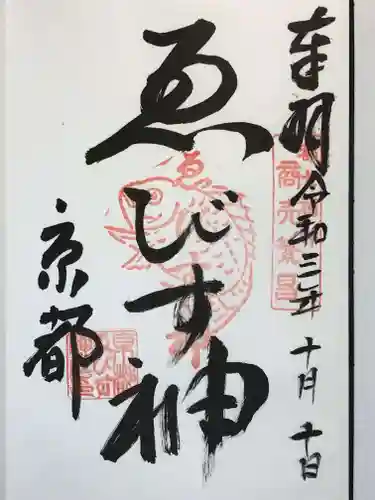 奉拝 令和三年 十月 十日
商売繁昌
ゑびす神
ゑ
京都